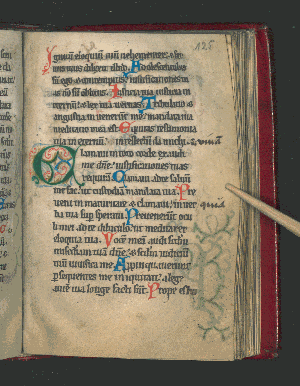 125
Ignitum eloquium tuum vehementer: et ser
uus tuus dilexit illud. Adolescentulus
sum ego et contemptus: iustificationes tuas
non sum oblitus. Iusticia tua iusticia in
eternum: et lex tua veritas. Tribulatio et
angustia inuenerunt me: mandata tua
meditatio mea est. Equitas testimonia
tua in eternum: intellectum da michi et viuam
Clamaui in toto corde exaudi
me domine: iustificationes tuas
requiram. Clamaui ad te saluum
me fac: ut custodiam mandata tua. Pre
ueni in maturitate et clamaui: in uer quia
ba tua supersperaui. Preuenerunt ocu
li mei ad te diluculo: ut meditarer
eloquia tua. Vocem meam audi secundum
misericordiam tuam domine: et secundum iudicium
tuum uiuifica me. Appropinquauerunt
persequentes me iniquitati: a lege
autem tua longe facti sunt. Prope es tu